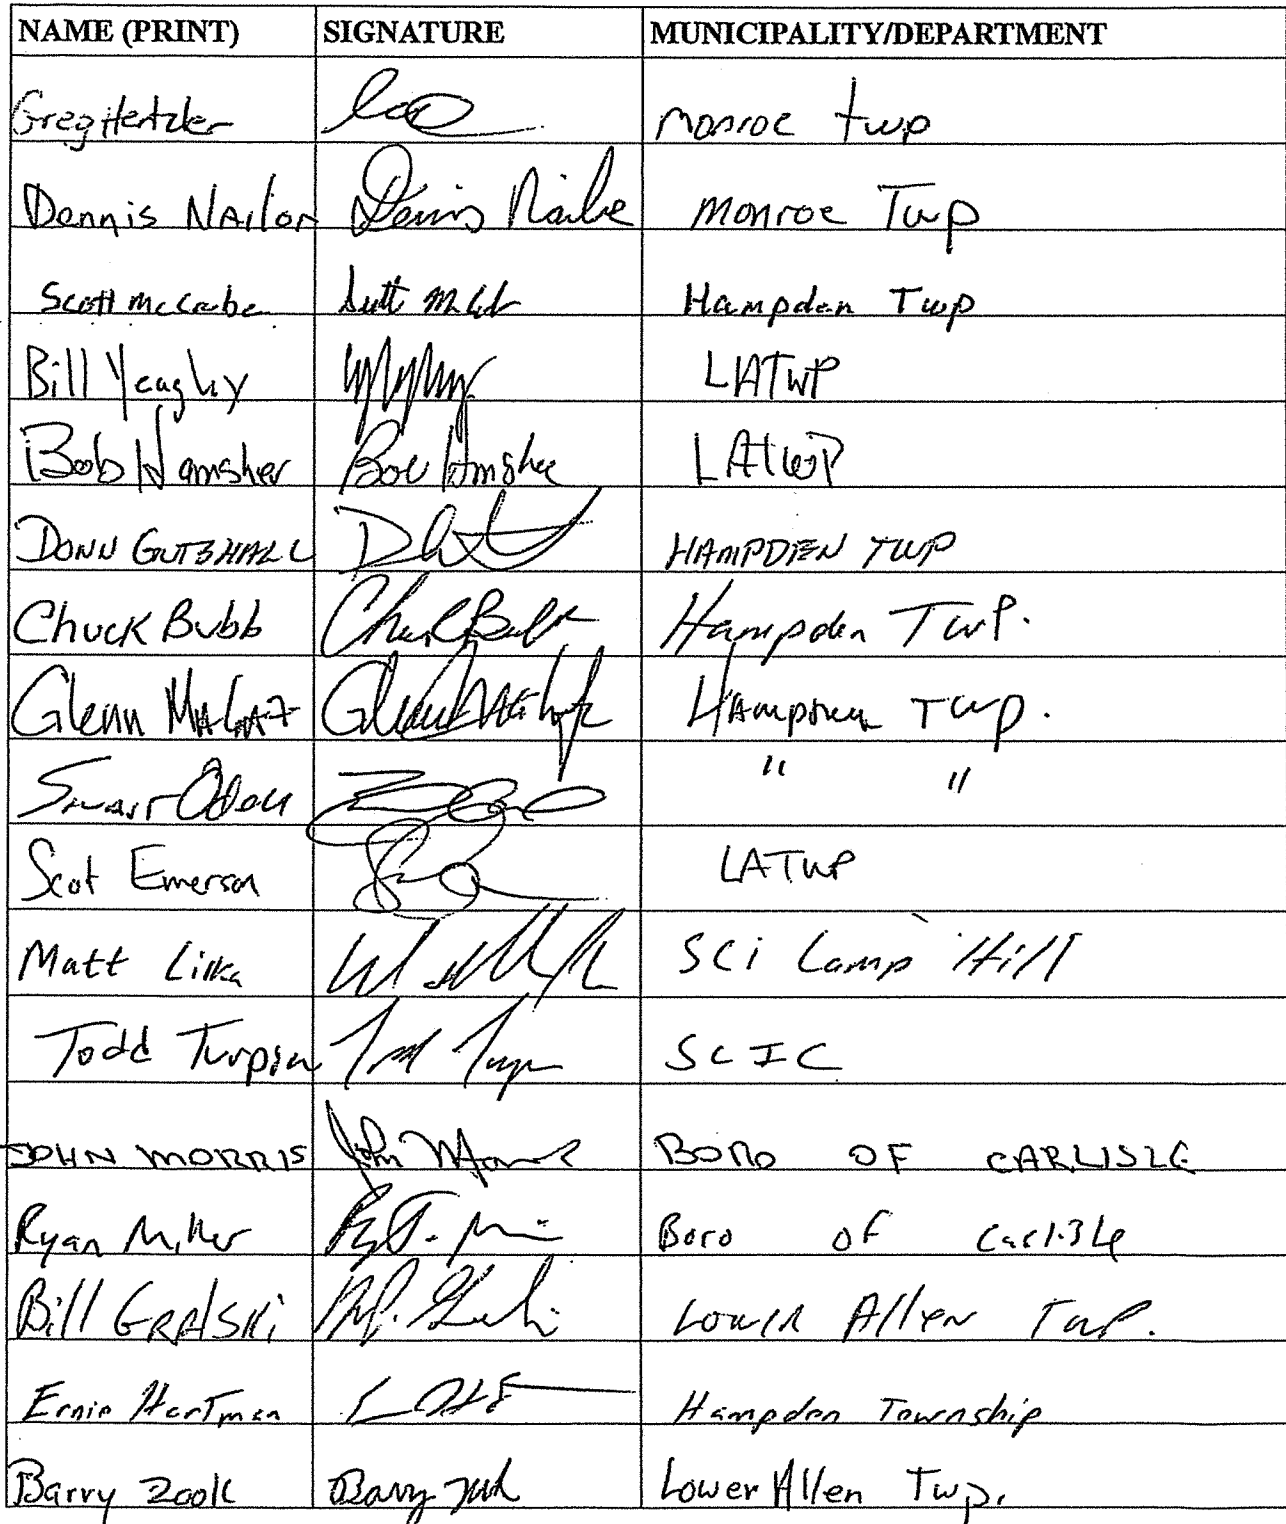 NAME (PRINT) SIGNATURE MUNICIPALITY/DEPARTMENT
Greg Hertzler monroe twp
Dennis NAilor Dennis Nailor monroe Twp
Scott mccabe Hampden Twp
Bill Yeagley LATWP
Bob Hamsher Bob Hamsher LATWP
DONN GUTSHALL HAMPDEN TWP
Chuck Bubb Chuck Bubb Hampden Twp.
Glenn Glenn Hampden Twp.
" "
Scot Emerson LATWP
Matt SCi Camp Hill
Todd Turpin SCIC
JOHN MORRIS John Morris BORO OF CARLISLE
Ryan Miller Boro of Carlisle
Bill GRAlSKi Lower Allen Twp.
Ernie Hartman Hampden Township
Barry Zook Barry Zook Lower Allen Twp.